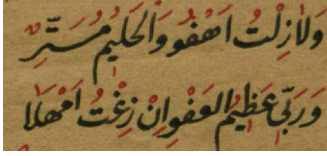 وَلَا زِلْتُ اَهْفُو وَالْحَلِيمُ مُسَتِّرٌ
وَرَبِّى عَظِيمُ الْعَفْوِ اِنْ زِغْتُ اَمْهَلَا